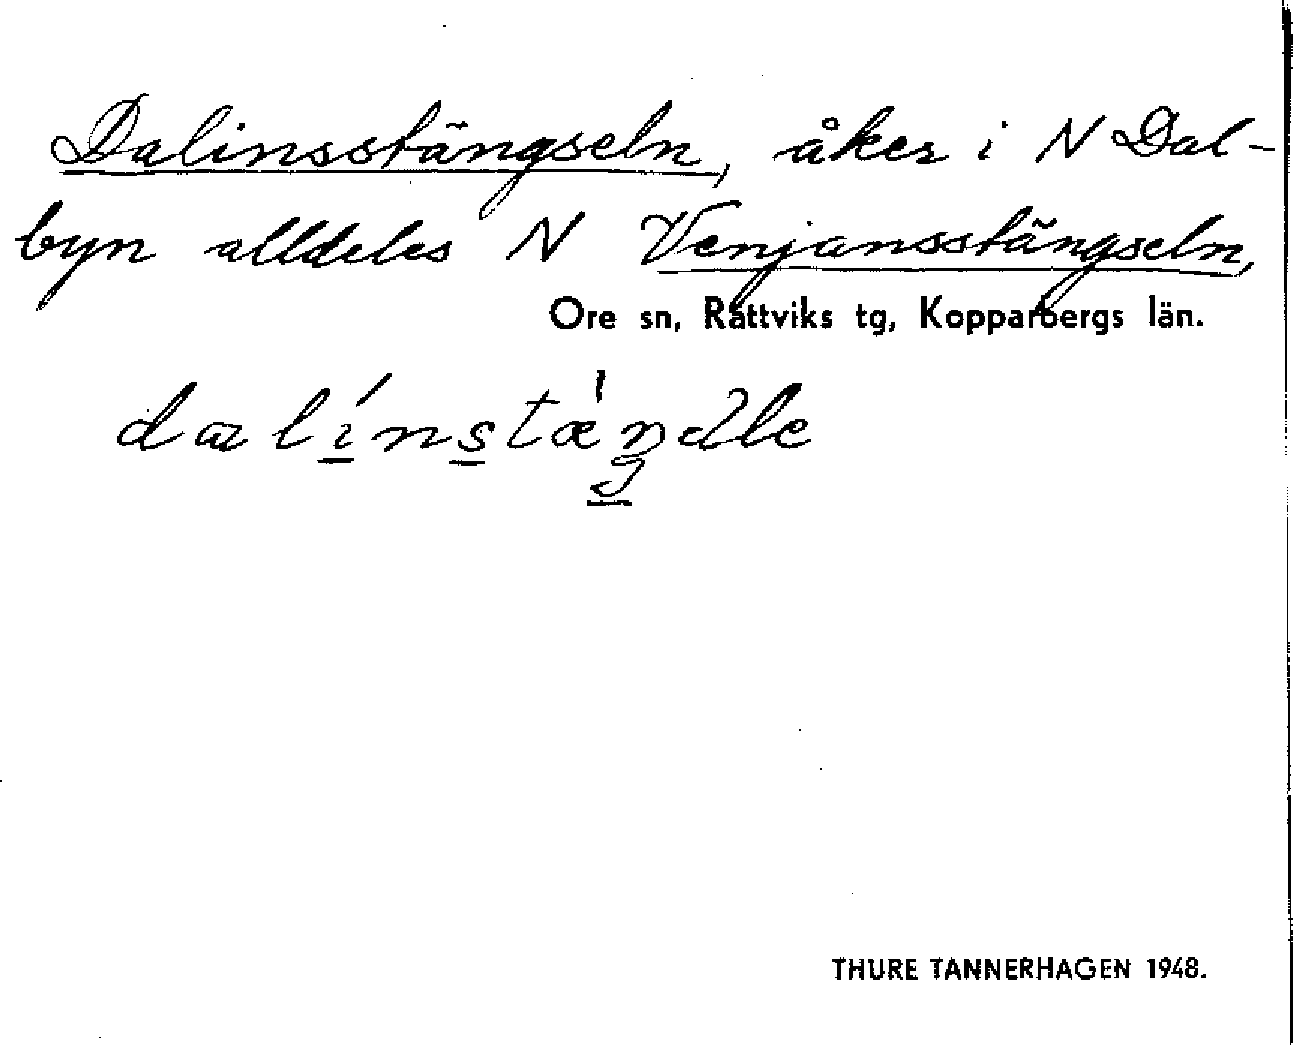 Dalinsstängseln, åker i N Dal-
byn alldeles N Venjansstängseln,
Ore sn, Rättviks tg, Kopparbergs län.
THURE TANNERHAGEN 1948.